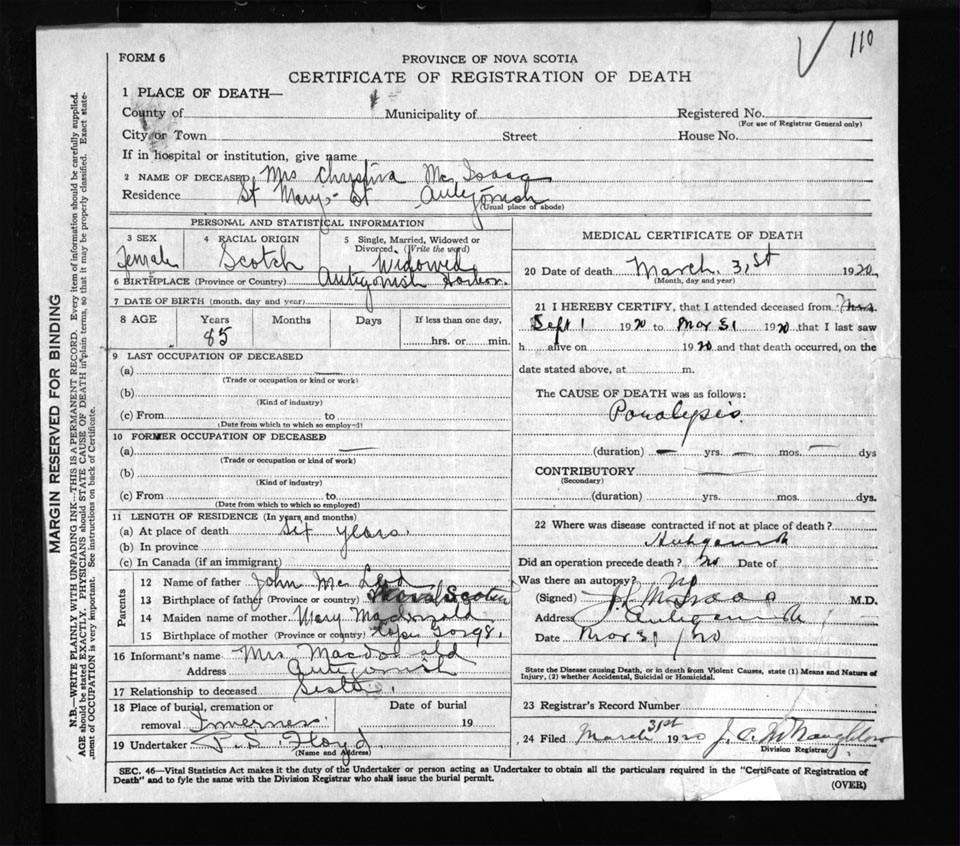 110
FORM 6
PROVINCE OF NOVA SCOTIA
CERTIFICATE OF REGISTRATION OF DEATH
MARGIN RESERVED FOR BINDING
N.B.—WRITE PLAINLY WITH UNFADING INK—THIS IS A PERMANENT RECORD. Every item of information should be carefully supplied.
AGE should be stated EXACTLY. PHYSICIANS should STATE CAUSE OF DEATH in plain terms, so that it may be properly classified. Exact state-
ment of OCCUPATION is very important. See instructions on back of Certificate.
1 PLACE OF DEATH—
County of Municipality of Registered No.
(For use of Registrar General only)
City or Town Street House No.
If in hospital or institution, give name
2 NAME OF DECEASED Mrs Chrystina Mc Isaac
Residence St Mary's St Antigonish
(Usual place of abode)
PERSONAL AND STATISTICAL INFORMATION
3 SEX 4 RACIAL ORIGIN 5 Single, Married, Widowed or
Divorced. (Write the word)
Female Scotch Widowed
6 BIRTHPLACE (Province or Country) Antigonish Harbor.
7 DATE OF BIRTH (month, day and year)
8 AGE Years Months Days If less than one day,
85 hrs. or min.
9 LAST OCCUPATION OF DECEASED
(a)
(Trade or occupation or kind or work)
(b)
(Kind of industry)
(c) From to
(Date from which to which so employed)
10 FORMER OCCUPATION OF DECEASED
(a)
(Trade or occupation or kind of work)
(b)
(Kind of industry)
(c) From to
(Date from which to which so employed)
11 LENGTH OF RESIDENCE (In years and months)
(a) At place of death six years.
(b) In province
(c) In Canada (if an immigrant)
Parents
12 Name of father John Mc Leod
13 Birthplace of father (Province or country) Nova Scotia
14 Maiden name of mother Mary Macdonald
15 Birthplace of mother (Province or country) Cape
16 Informant's name Mrs. Macdonald
Address Antigonish
17 Relationship to deceased Sister.
18 Place of burial, cremation or Date of burial
removal Inverness 19
19 Undertaker P.S. Floyd
(Name and Address)
MEDICAL CERTIFICATE OF DEATH
20 Date of death March. 31st 1920
(Month, day and year)
21 I HEREBY CERTIFY, that I attended deceased from Mrs.
Sept 1 1920 to Mar 31 1920 that I last saw
h alive on 1920 and that death occurred, on the
date stated above, at m.
The CAUSE OF DEATH was as follows:
Paralysis.
(duration) — yrs. — mos. — dys
CONTRIBUTORY
(Secondary)
(duration) yrs. mos. dys.
22 Where was disease contracted if not at place of death?
Antigonish
Did an operation precede death? no Date of
Was there an autopsy? No
(Signed) M.D.
Address Antigonish
Date Mar 31 / 20
State the Disease causing Death, or in death from Violent Causes, state (1) Means and Nature of
Injury, (2) whether Accidental, Suicidal or Homicidal.
23 Registrar's Record Number
24 Filed March 31st 1920 J. A. McNaughton
Division Registrar
SEC. 46—Vital Statistics Act makes it the duty of the Undertaker or person acting as Undertaker to obtain all the particulars required in the "Certificate of Registration of
Death" and to fyle the same with the Division Registrar who shall issue the burial permit.
(OVER)